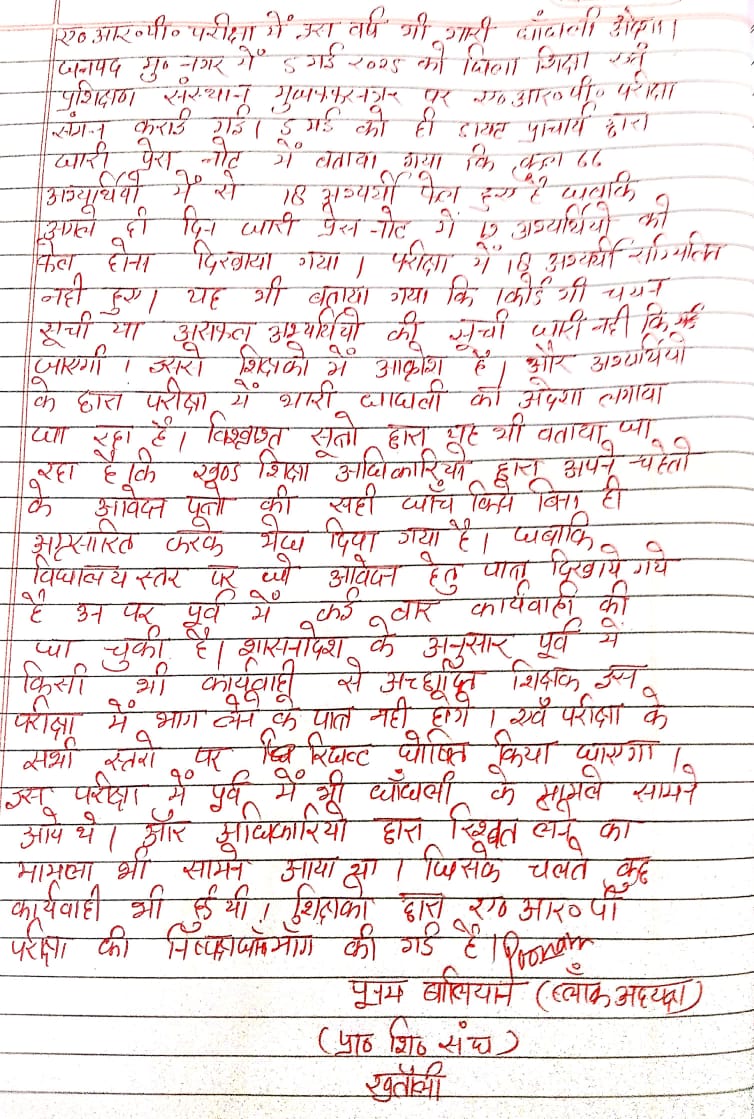 ए०आर०पी० परीक्षा में इस वर्ष भी भारी धाँधली अंदेशा।
जनपद मु० नगर में 5 मई 2025 को जिला शिक्षा एवं
प्रशिक्षण संस्थान मुजफ्फरनगर पर ए०आर०पी० परीक्षा
संपन्न कराई गई। 5 मई को ही डायट प्राचार्य द्वारा
जारी प्रेस नोट में बताया गया कि कुल 66
अभ्यर्थियों में से 18 अभ्यर्थी फेल हुए हैं जबकि
अगले ही दिन जारी प्रेस नोट में 12 अभ्यर्थियों को
फेल होना दिखाया गया। परीक्षा में 18 अभ्यर्थी सम्मिलित
नही हुए। यह भी बताया गया कि कोई भी चयन
सूची या असफल अभ्यर्थियो की सूची जारी नही कि गई
जाएगी। इससे शिक्षको में आक्रोश है। और अभ्यर्थियो
के द्वारा परीक्षा में भारी धाधली का अंदेशा लगाया
जा रहा है। विश्वस्त सूत्रो द्वारा यह भी बताया जा
रहा है कि खण्ड शिक्षा अधिकारियो द्वारा अपने चहेतो
के आवेदन पत्रो की सही जाँच किये बिना ही
अग्रसारित करके भेज दिया गया है। जबकि
विद्यालय स्तर पर जो आवेदन हेतु पात्र दिखाये गये
है उन पर पूर्व में कई बार कार्यवाही की
जा चुकी है। शासनादेश के अनुसार पूर्व में
किसी भी कार्यवाही से अच्छादित शिक्षक इस
परीक्षा में भाग लेने के पात्र नही होंगे। एवं परीक्षा के
सभी स्तरो पर रिजल्ट घोषित किया जाएगा।
इस परीक्षा में पूर्व में भी धाँधली के मामले सामने
आये थे। और अधिकारियो द्वारा रिश्वत लेने का
मामला भी सामने आया था। जिसके चलते कुछ
कार्यवाही भी हुई थी। शिक्षको द्वारा ए० आर० पी०
परीक्षा की निष्पक्ष जाँच माँग की गई है। Poonam
पूनम बालियान (ब्लॉक अध्यक्ष)
(प्रा० शि० संघ)
खतौली